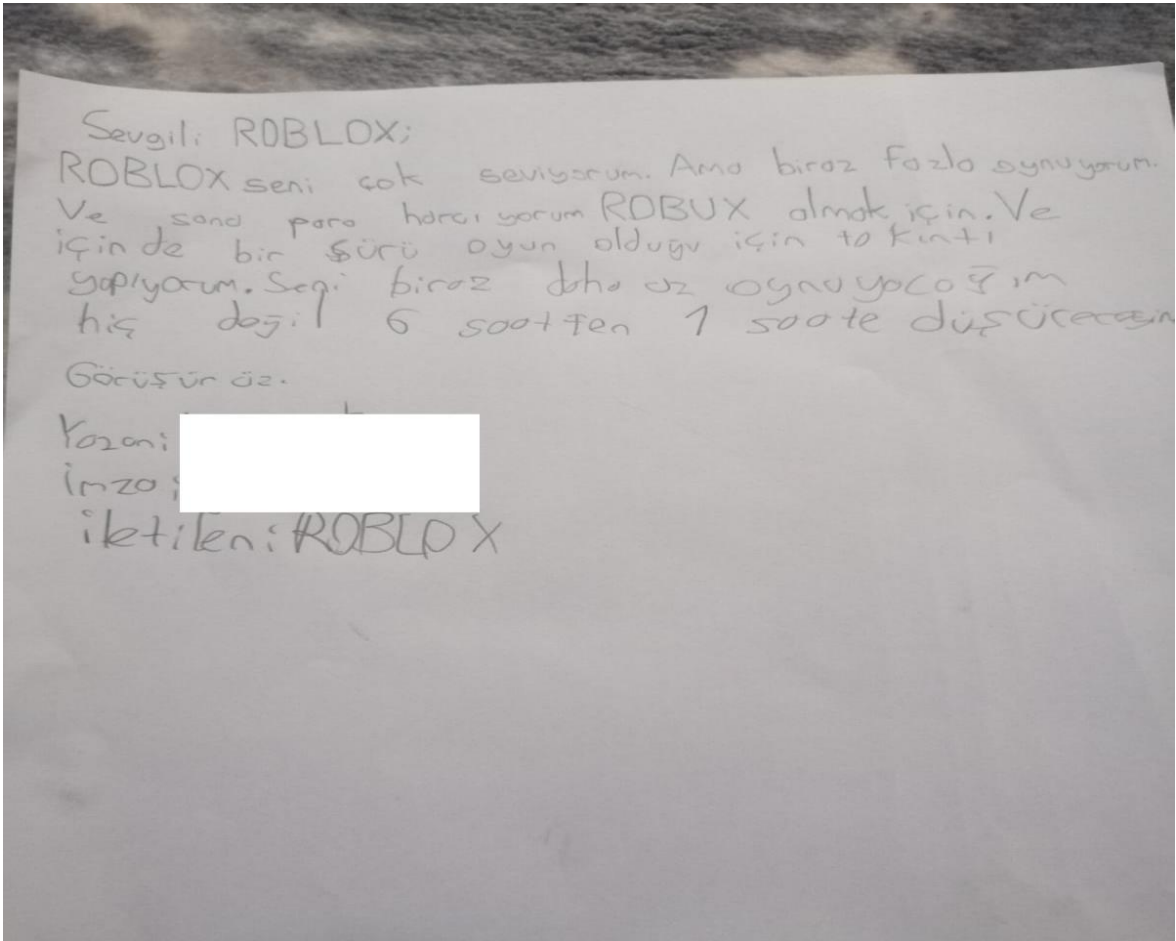 Sevgili ROBLOX;
ROBLOX seni çok seviyorum. Ama biraz fazla oynuyorum.
Ve sana para harcıyorum ROBUX almak için. Ve
içinde bir sürü oyun olduğu için takıntı
yapıyorum. Seni biraz daha az oynuyacağım
hiç değil 6 saatten 1 saate düşürecegim
Görüşürüz.
Yazan;
İmza;
iletilen: ROBLOX